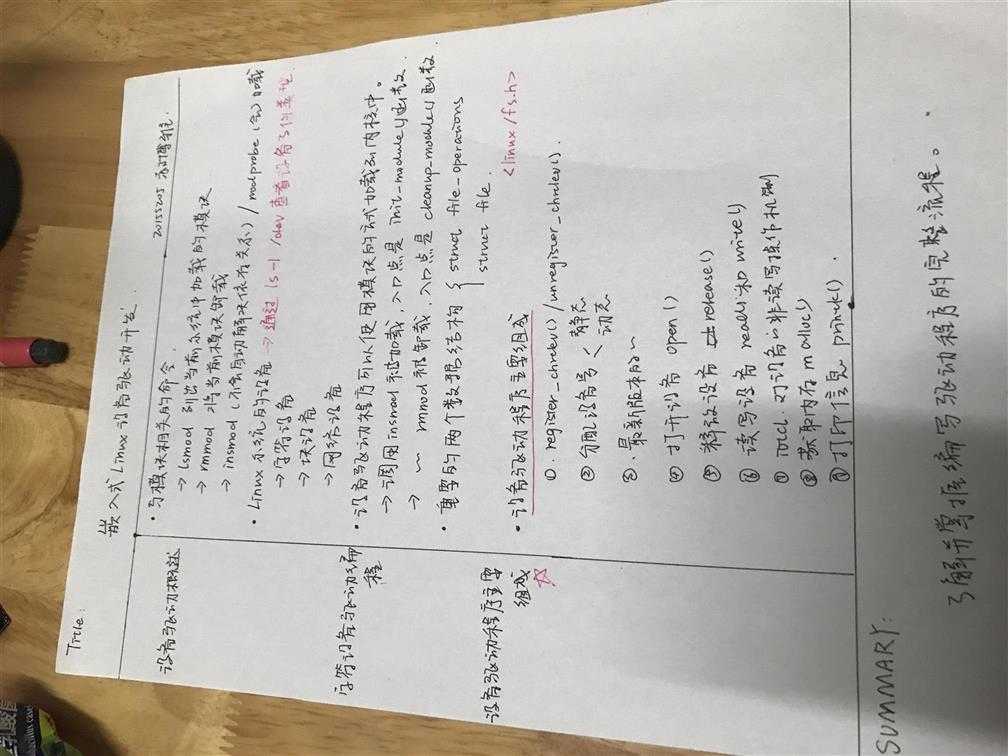 Title:
嵌入式Linux设备驱动开发
20155205 郝博雅
设备驱动概述
· 与模块相关的命令
→ lsmod 列出当前系统中加载的模块
→ rmmod 将当前模块卸载
→ insmod (不会自动解决依赖关系) / modprobe (会) 加载
· Linux系统的设备 → 通过 ls -l /dev 查看设备的类型.
→ 字符设备
→ 块设备
→ 网络设备
字符设备驱动编程
· 设备驱动程序可以使用模块的方式加载到内核中。
→ 调用insmod被加载,入口点是 init_module()函数.
→ ~ rmmod 被卸载,入口点是 cleanup_module()函数
· 重要的两个数据结构 { struct file_operations
struct file.
<linux/fs.h>
设备驱动程序主要组成 ☆
· 设备驱动程序主要组成
①. register_chrdev() / unregister_chrdev().
② 分配设备号 < 静态
动态
③. 最新版本的~
④ 打开设备 open()
⑤ 释放设备 release()
⑥ 读写设备 read()和write()
⑦ ioctl. 对设备的非读写操作机制
⑧ 获取内存 malloc()
⑨ 打印信息 printk().
SUMMARY:
了解并掌握编写驱动程序的完整流程。